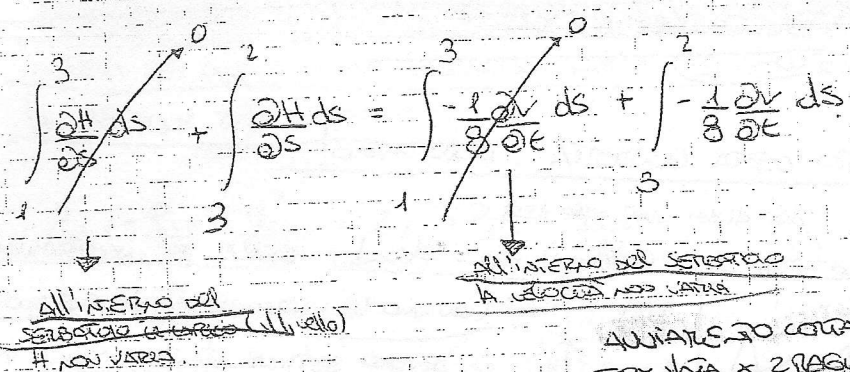 ∫₁³ ∂H/∂s ds → 0 + ∫₃² ∂H/∂s ds = ∫₁³ -1/g ∂v/∂t ds → 0 + ∫₃² -1/g ∂v/∂t ds
All'INTERNO DEL
SERBATOIO (il livello)
H NON VARIA.
All'INTERNO DEL SERBATOIO
LA VELOCITÀ NON VARIA